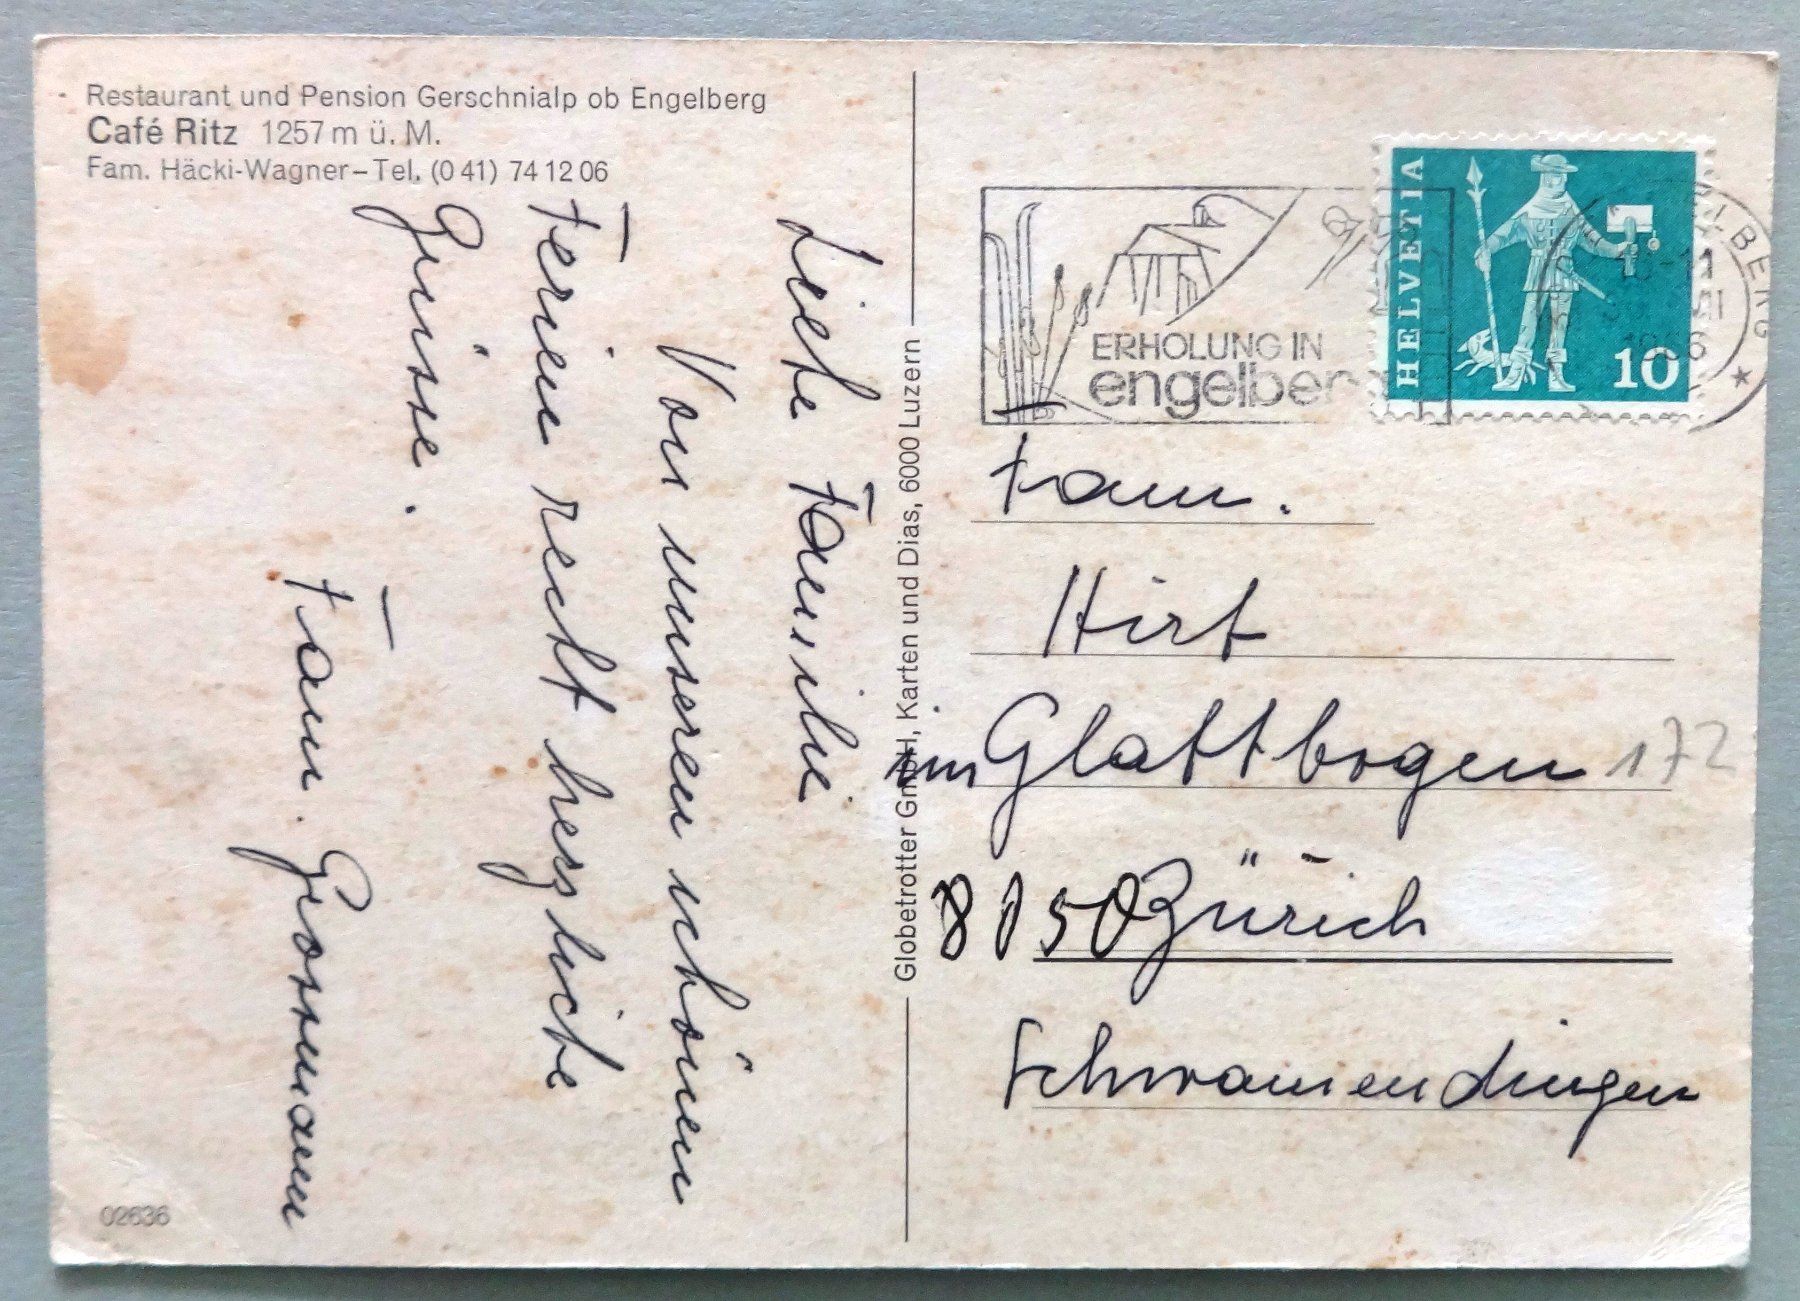 Restaurant und Pension Gerschnialp ob Engelberg
Café Ritz 1257 m ü. M.
Fam. Häcki-Wagner – Tel. (0 41) 74 12 06
Liebe Familie
Von unseren schönen
Ferien recht herzliche
Grüsse.
Fam. Grossmann
02636
Globetrotter GmbH, Karten und Dias, 6000 Luzern
ERHOLUNG IN
engelberg
HELVETIA
10
1966
Fam.
Hirt
im Glattbogen 172
8050 Zürich
Schwamendingen